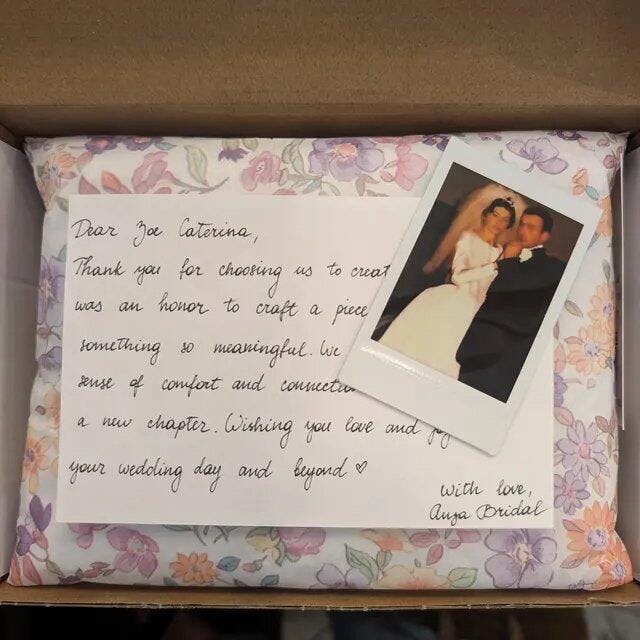 Dear Zoe Caterina,
Thank you for choosing us to creat
was an honor to craft a piece
something so meaningful. We
sense of comfort and connectio
a new chapter. Wishing you love and joy
your wedding day and beyond ♡
With love,
Anya Bridal